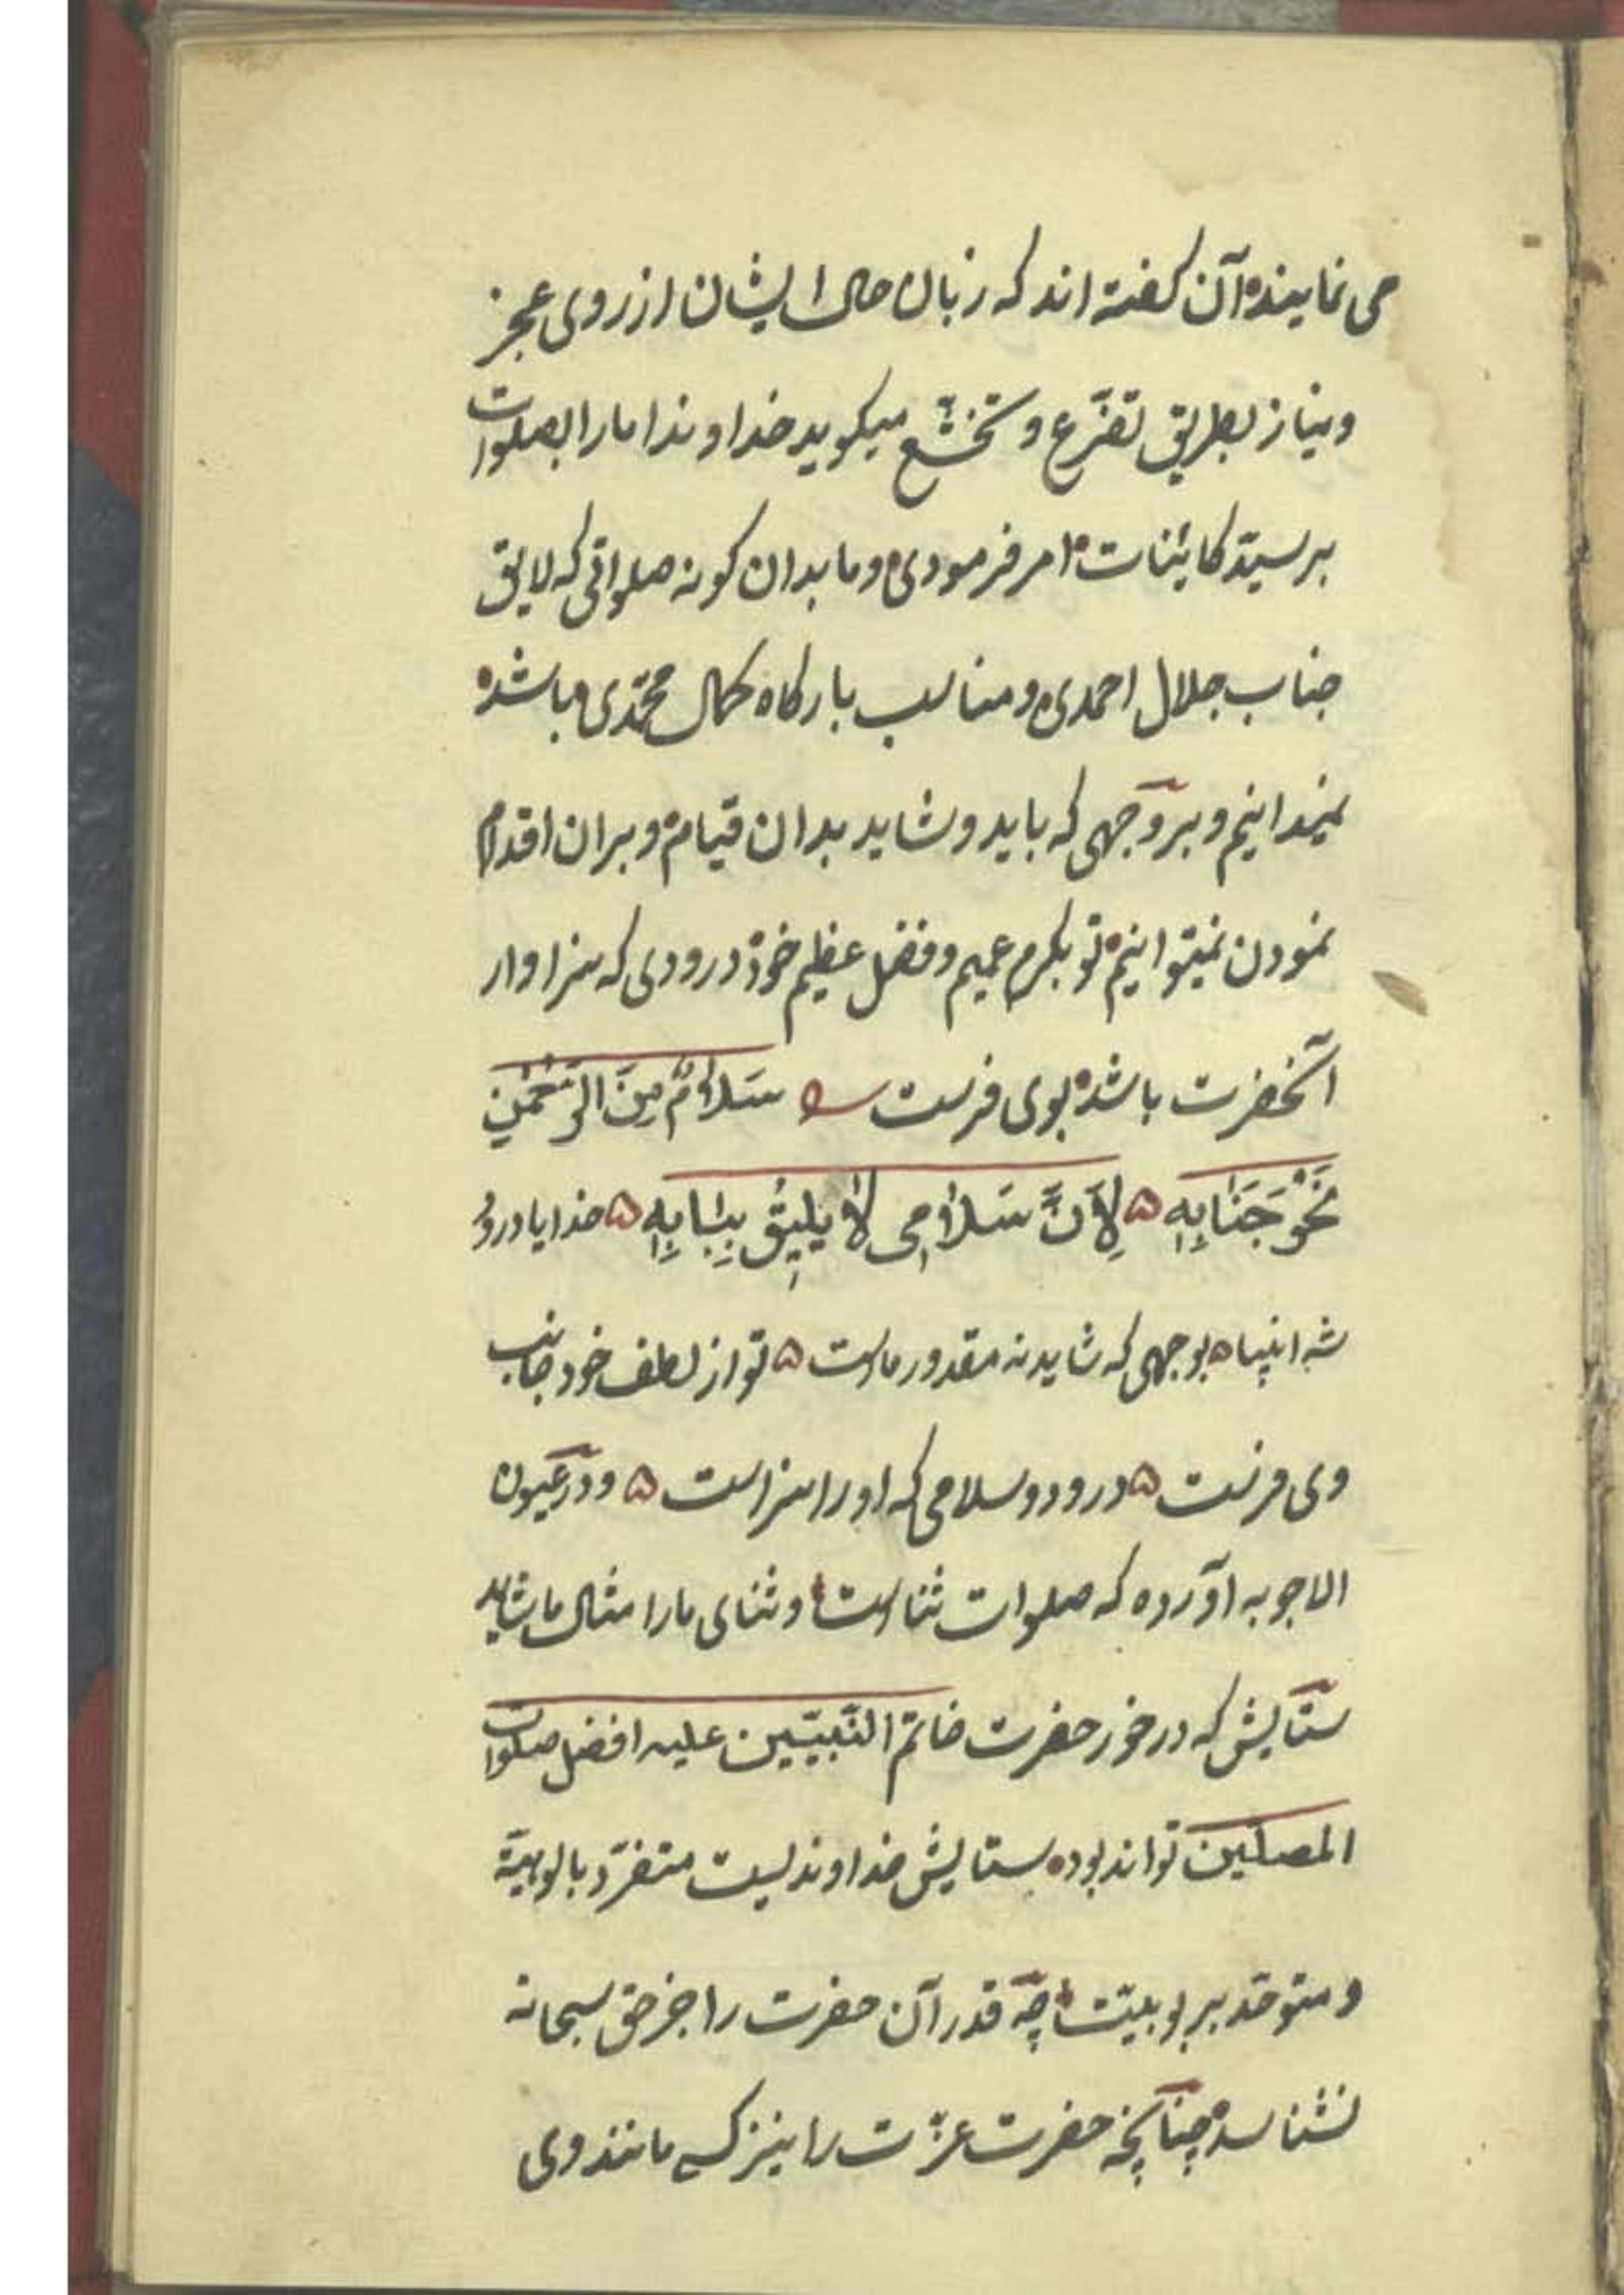 می نمایند آن کفته اند که زبان حال ایشان از روی عجز
و نیاز بطریق تضرّع و تخشّع میکوید خداوندا ما را بصلوات
بر سیّد کاینات امر فرمودی و ما بدان کونه صلواتی که لایق
جناب جلال احمدی و مناسب بارکاه کمال محمّدی باشد
نمیدانیم و بر وجهی که باید و شاید بدان قیام و بران اقدام
نمودن نمیتوانیم تو بکرم عمیم و فضل عظیم خود درودی که سزاوار
آنحضرت باشد بوی فرست سَلَامٌ مِنَ الرَّحْمٰنِ
نَحْوَ جَنَابِهِ ۵ لِاَنَّ سَلَامِی لَا یَلِیقُ بِبَابِهِ ۵ خدایا درود
شه انبیا ۵ بوجهی که شاید نه مقدور ماست ۵ تو از لطف خود جانب
وی فرست ۵ درود و سلامی که او را سزاست ۵ و در عیون
الاجوبه آورده که صلوات ثناست و ثنای ما را امثال ما شاید
ستایش که در خور حضرت خاتم النّبیّین علیه افضل صلوات
المصلّین تواند بود ستایش خداوندیست متفرّد بالوهیّة
و متوحّد بربوبیّت چه قدر آن حضرت را جز حق سبحانه
نشناسد چنانچه حضرت عزّت را نیز کسی مانند وی